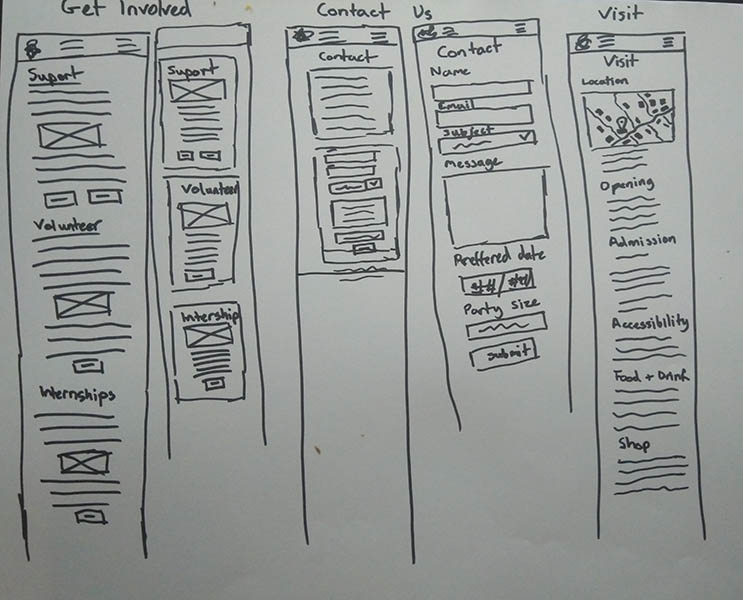 Get Involved
Suport
Volunteer
Internships
Suport
Volunteer
Intership
Contact Us
Contact
Contact
Name
Email
Subject
Message
Preffered date
Party size
submit
Visit
Visit
Location
Opening
Admission
Accessibility
Food + Drink
Shop